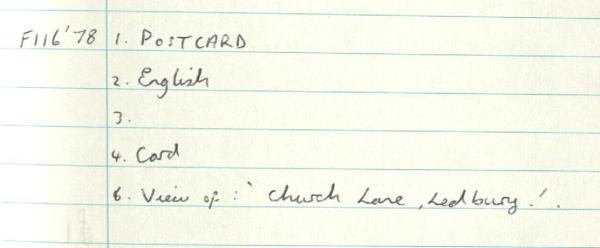 F116'78 1. POSTCARD
2. English
3.
4. Card
6. View of :' Church Lane, Ledbury.'.